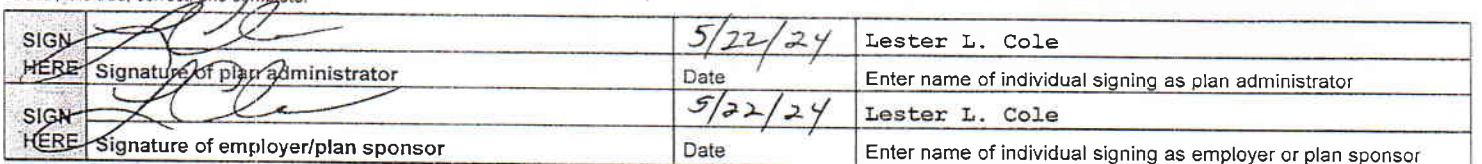 SIGN 5/22/24 Lester L. Cole
HERE Signature of plan administrator Date Enter name of individual signing as plan administrator
SIGN 5/22/24 Lester L. Cole
HERE Signature of employer/plan sponsor Date Enter name of individual signing as employer or plan sponsor